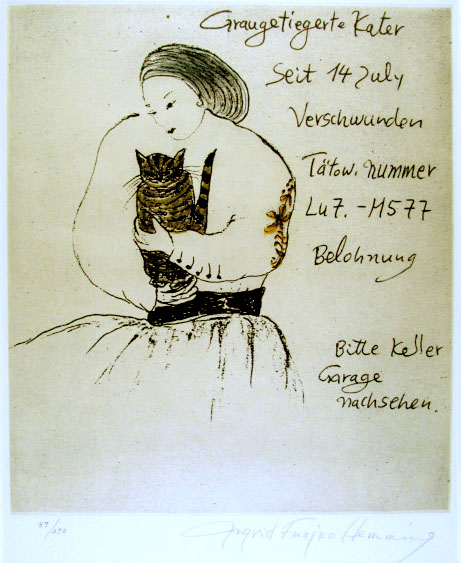 Graugetiegerte Kater
Seit 14 July
Verschwunden
Tätow. nummer
Lu7. - H577
Belohnung
Bitte Keller
Garage
nachsehen.
87/290
Ingrid Fuajko Hemming